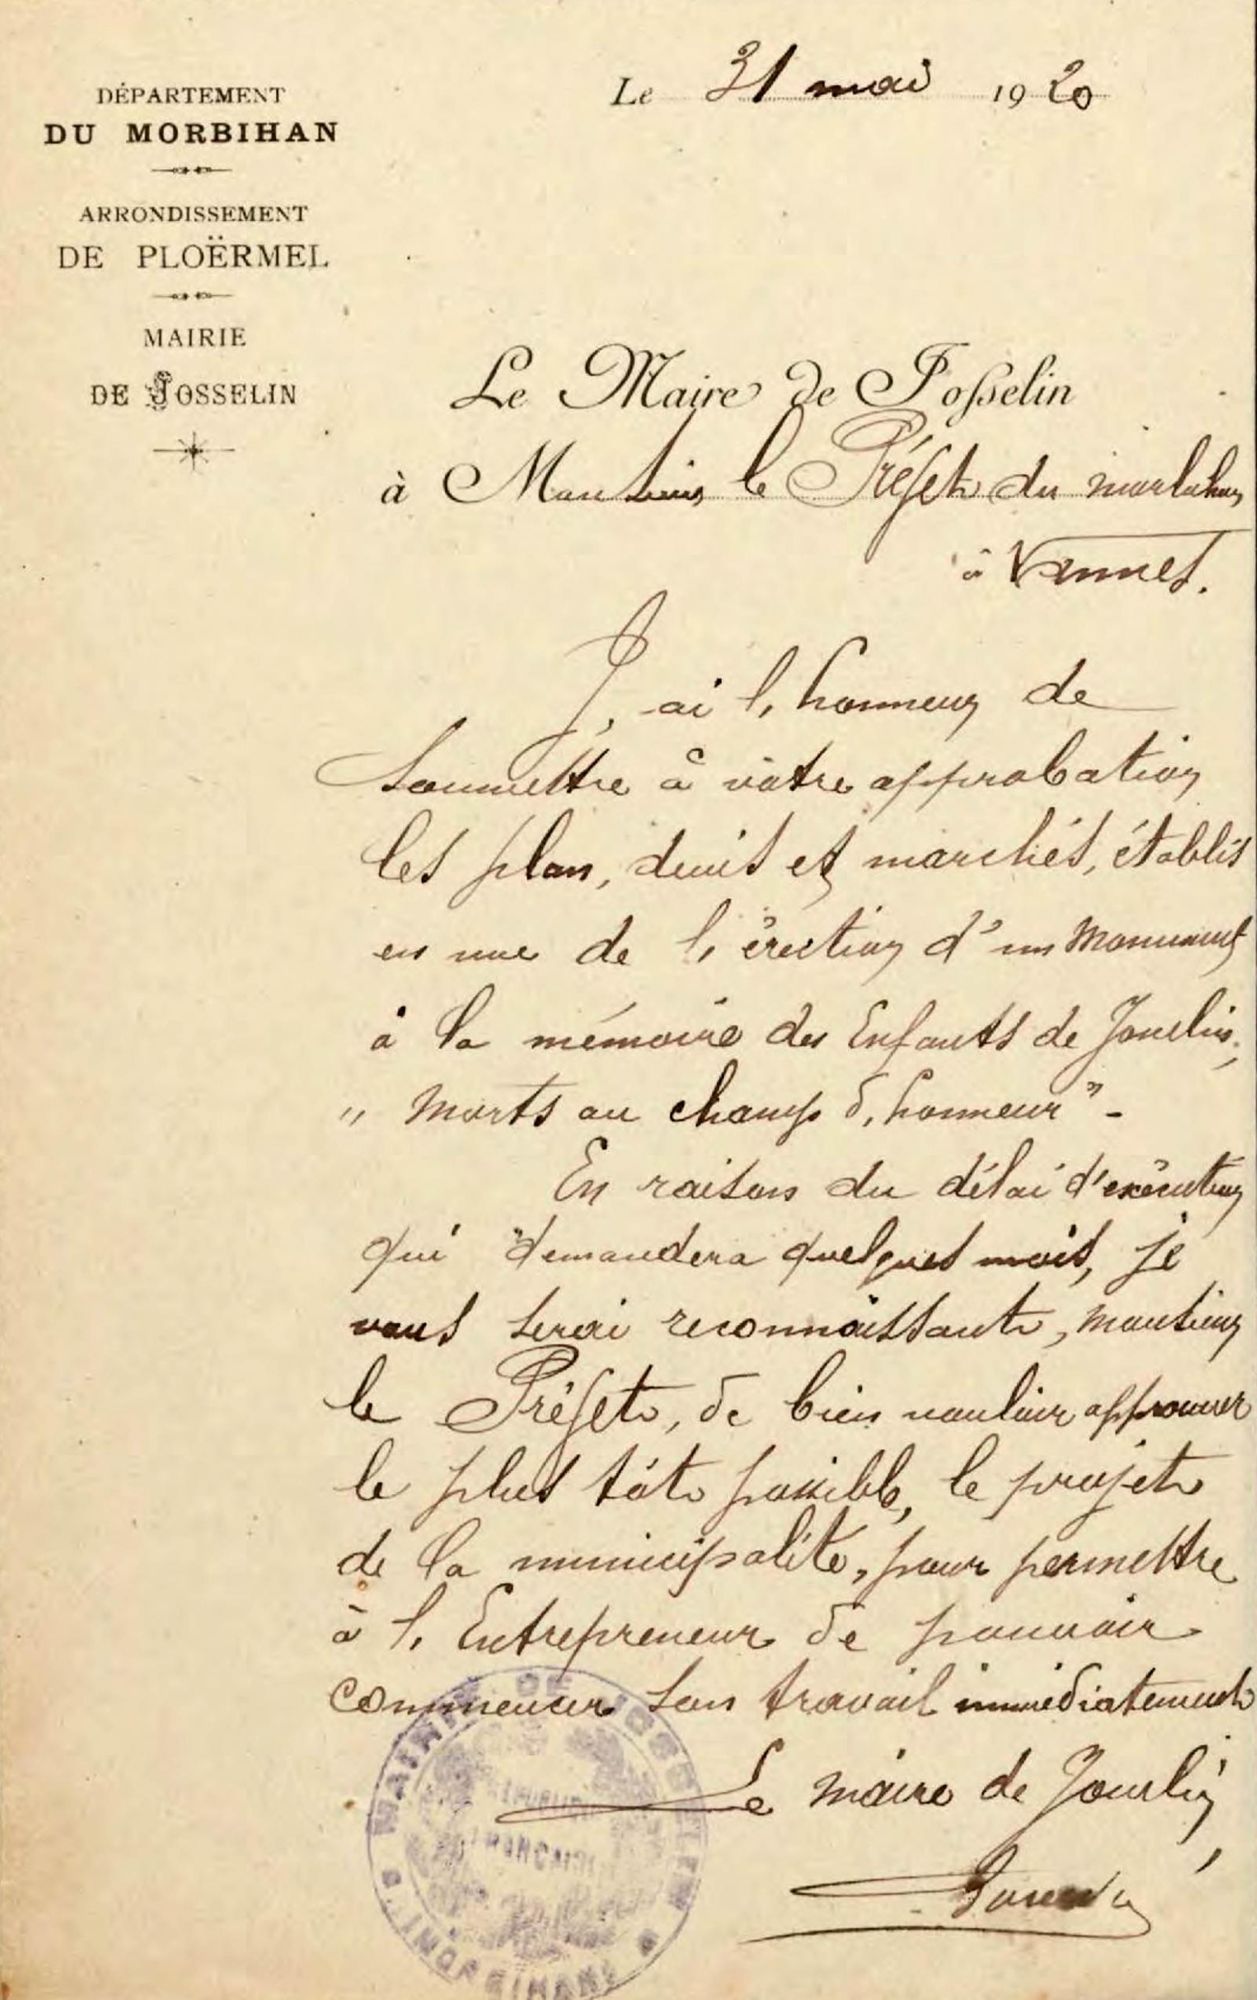 DÉPARTEMENT
DU MORBIHAN
ARRONDISSEMENT
DE PLOËRMEL
MAIRIE
DE JOSSELIN
Le 31 mai 1920
Le Maire de Josselin
à Monsieur le Préfet du Morbihan
à Vannes.
J'ai l'honneur de
soumettre à votre approbation
les plan, devis et marchés, établis
en vue de l'érection d'un Monument
à la mémoire des Enfants de Josselin,
"Morts au champ d'honneur" -
En raison du délai d'exécution
qui demandera quelques mois, je
vous serai reconnaissant, Monsieur
le Préfet, de bien vouloir approuver
le plus tôt possible, le projet
de la municipalité, pour permettre
à l'Entrepreneur de pouvoir
commencer son travail immédiatement
Le Maire de Josselin,
MAIRIE DE JOSSELIN
RÉPUBLIQUE
FRANÇAISE
(MORBIHAN)